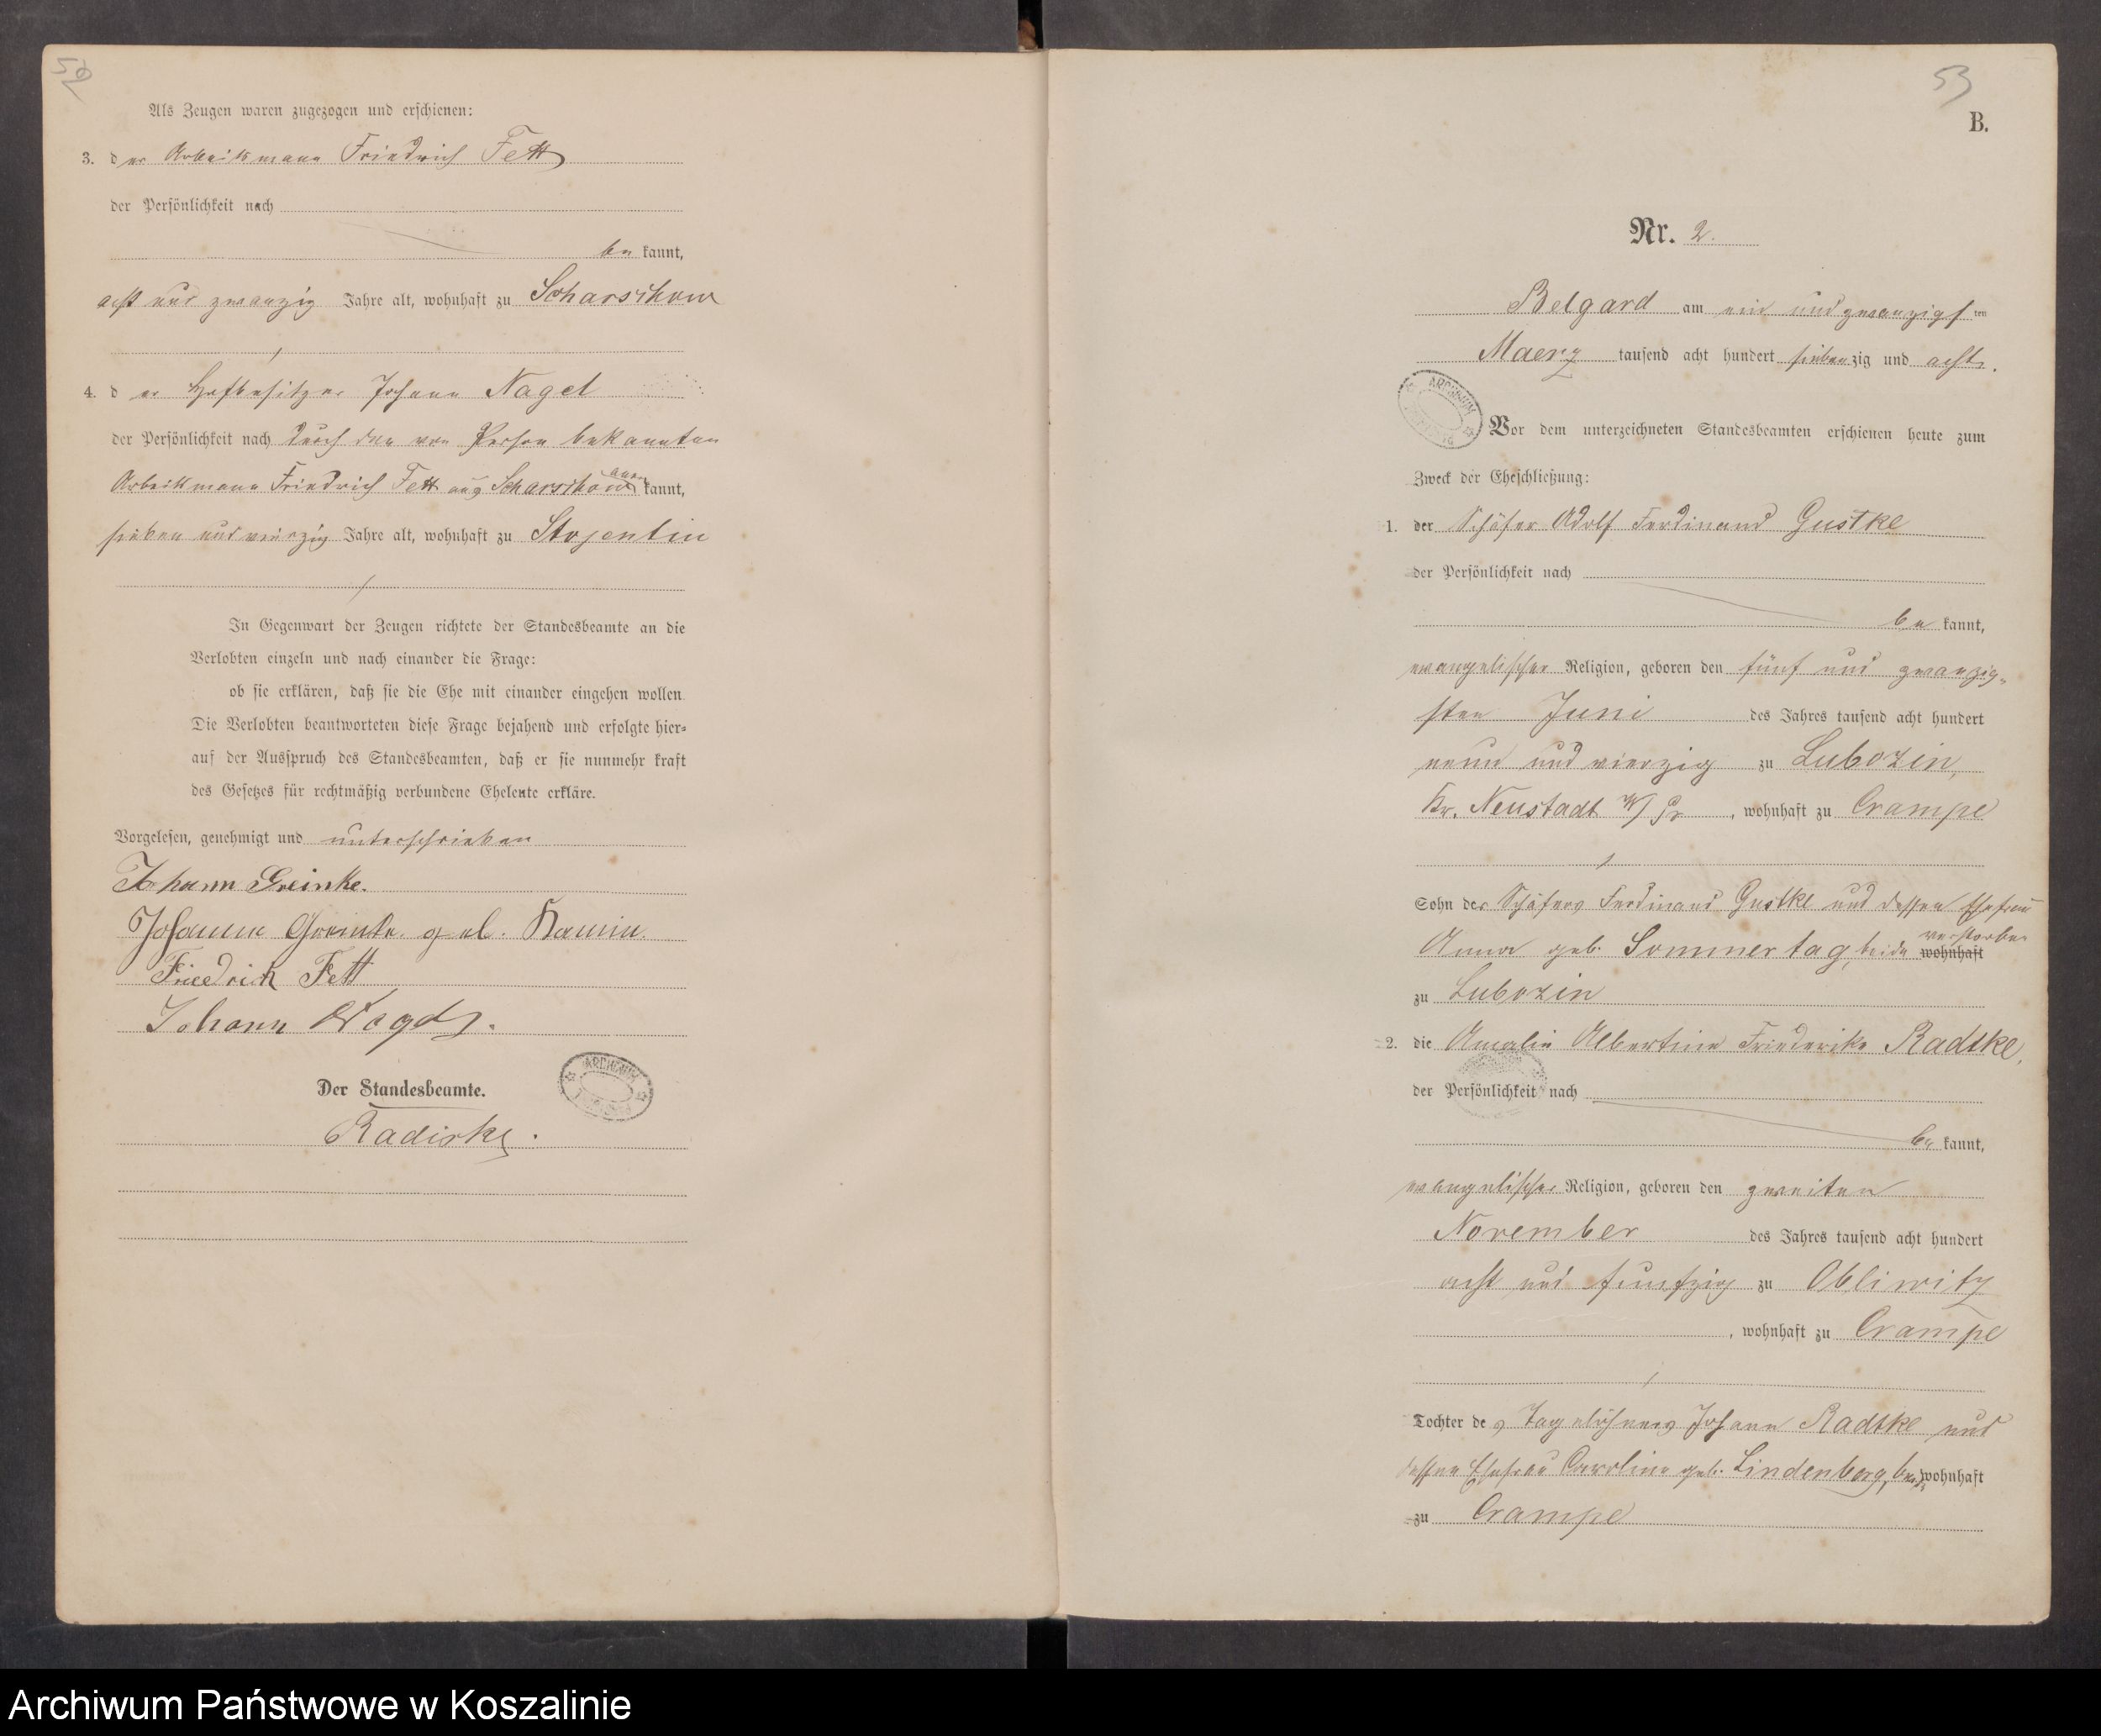 52
Als Zeugen waren zugezogen und erschienen:
3. der Arbeitsmann Friedrich Fett
der Persönlichkeit nach
be kannt,
acht und zwanzig Jahre alt, wohnhaft zu Scharschow
4. d er Hofbesitzer Johann Nagel
der Persönlichkeit nach durch den von Person bekannten
Arbeitsmann Friedrich Fett aus Scharschow aner kannt,
sieben und vierzig Jahre alt, wohnhaft zu Stojentin
In Gegenwart der Zeugen richtete der Standesbeamte an die
Verlobten einzeln und nach einander die Frage:
ob sie erklären, daß sie die Ehe mit einander eingehen wollen.
Die Verlobten beantworteten diese Frage bejahend und erfolgte hier-
auf der Ausspruch des Standesbeamten, daß er sie nunmehr kraft
des Gesetzes für rechtmäßig verbundene Eheleute erkläre.
Vorgelesen, genehmigt und unterschrieben
Johann Greinke.
Johanne Greinke geb. Hamin.
Friedrich Fett
Johann
Der Standesbeamte.
53
B.
Nr. 2.
Belgard am ein und zwanzigs ten
Maerz tausend acht hundert sieben zig und acht.
ARCHIWUM
Vor dem unterzeichneten Standesbeamten erschienen heute zum
Zweck der Eheschließung:
1. der Schäfer Adolf Ferdinand Gustke
der Persönlichkeit nach
be kannt,
evangelischer Religion, geboren den fünf und zwanzig-
sten Juni des Jahres tausend acht hundert
neun und vierzig zu Lubozin,
Kr. Neustadt W/Pr, wohnhaft zu Crampe
Sohn des Schäfers Ferdinand Gustke und dessen Ehefrau
Anna geb. Sommertag, beide verstorben wohnhaft
zu Lubozin
2. die Amalie Albertine Friederike Radtke,
der Persönlichkeit nach
be kannt,
evangelischer Religion, geboren den zweiten
November des Jahres tausend acht hundert
acht und funfzig zu Obliwitz
, wohnhaft zu Crampe
Tochter des Tagelöhners Johann Radtke und
dessen Ehefrau Caroline geb. Lindenberg, beide wohnhaft
zu Crampe
Archiwum Państwowe w Koszalinie